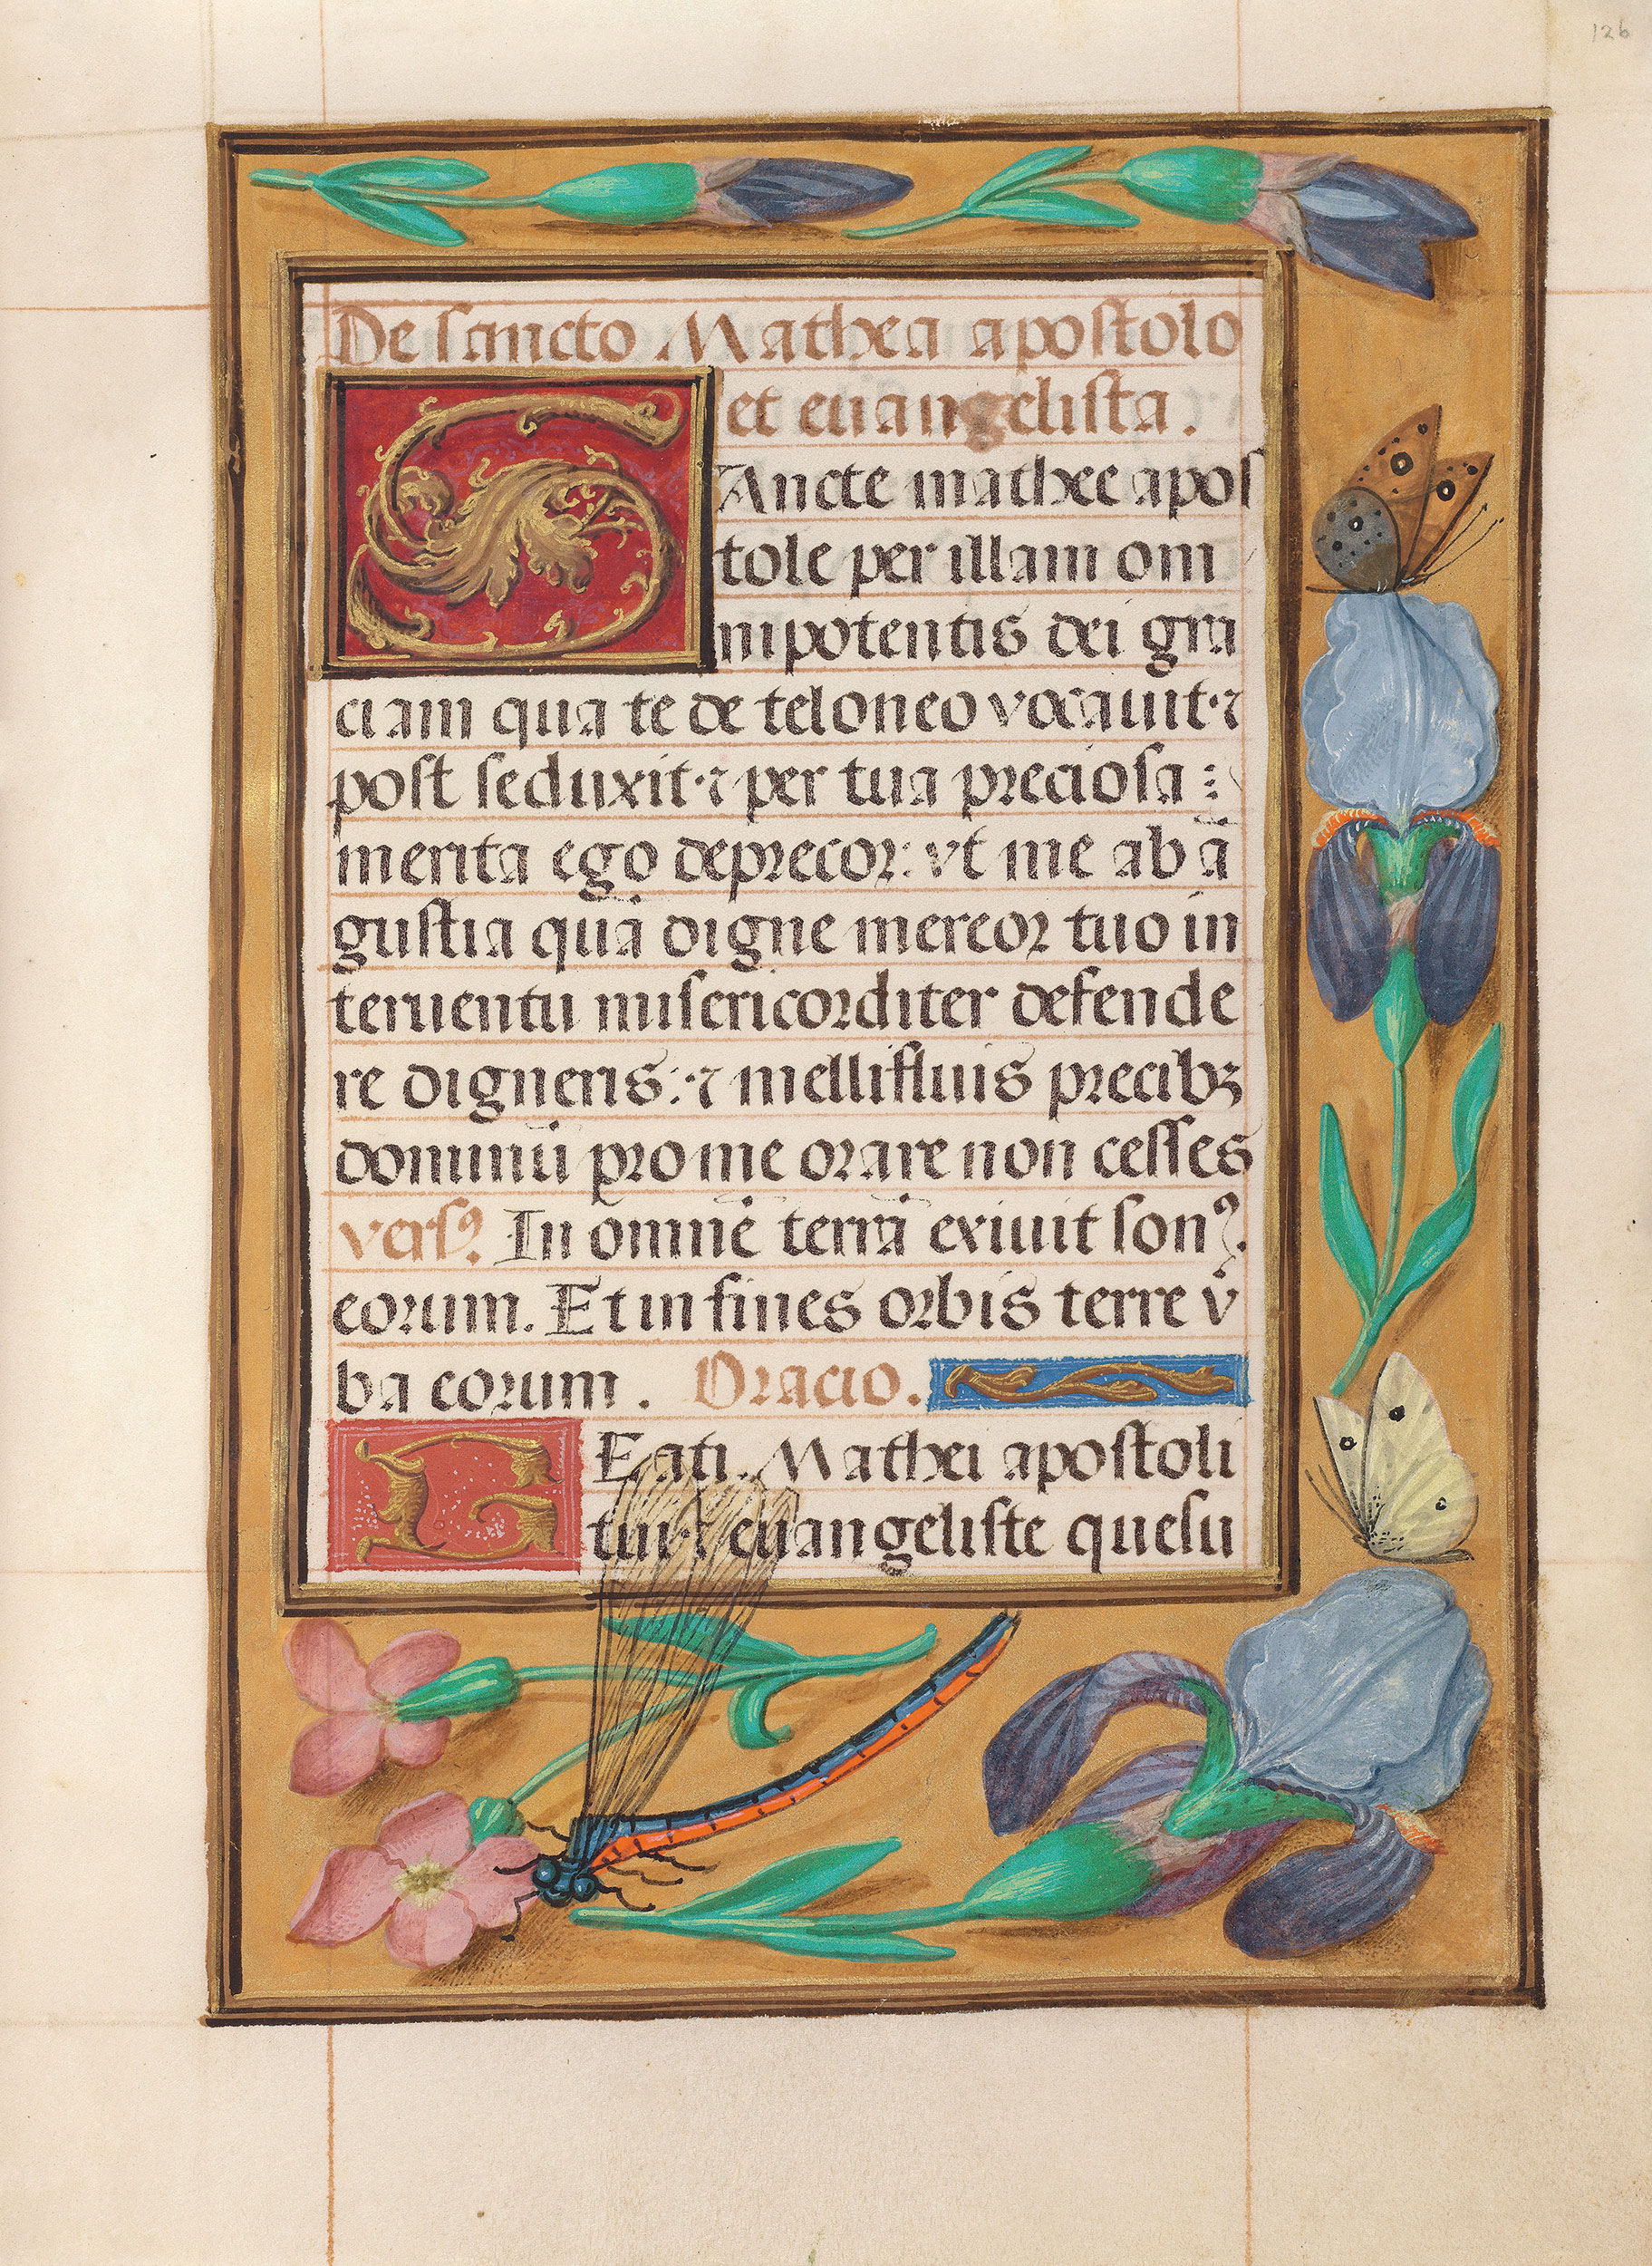 126
De sancto Mathea apostolo
et euangelista.
SAncte mathee apos
tole per illam om
nipotentis dei gra
ciam qua te de teloneo vocauit·⁊
post se duxit·⁊ per tua preciosa :
merita ego deprecor: vt me ab ā
gustia quā digne mereor tuo in
teruentu misericorditer defende
re digneris:·⁊ mellifluis precibꝫ
dominū pro me orare non cesses
versꝰ. In omnē terrā exiuit sonꝰ.
eorum. Et in fines orbis terre v̓
ba eorum. Oracio.
BEati Mathei apostoli
tui ⁊ euangeliste quesu